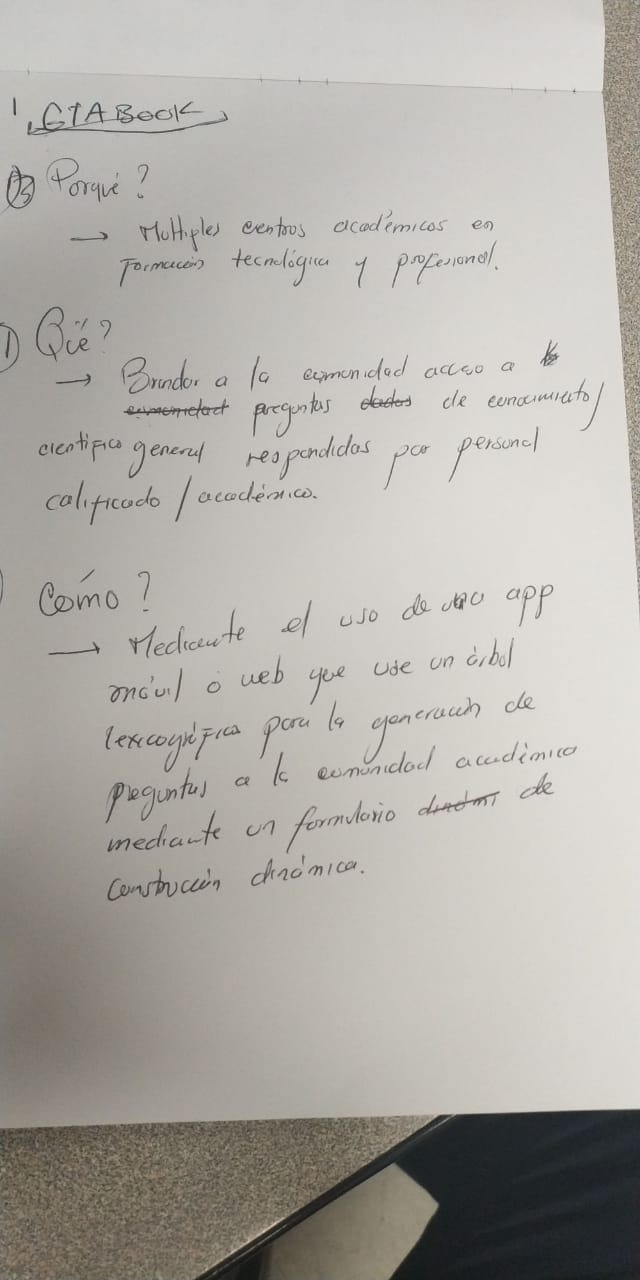 1. GTABOOK
③ Porqué?
→ Multiples centros académicos en
Formación tecnológica y profesional.
1) Qué?
→ Brindar a la comunidad acceso a
comunidad preguntas dadas de conocimiento/
cientifico general respondidas por personal
calificado / académico.
Cómo?
→ Mediante el uso de una app
móvil o web que use un árbol
lexicográfico para la generación de
preguntas a la comunidad académica
mediante un formulario de
construcción dinámica.